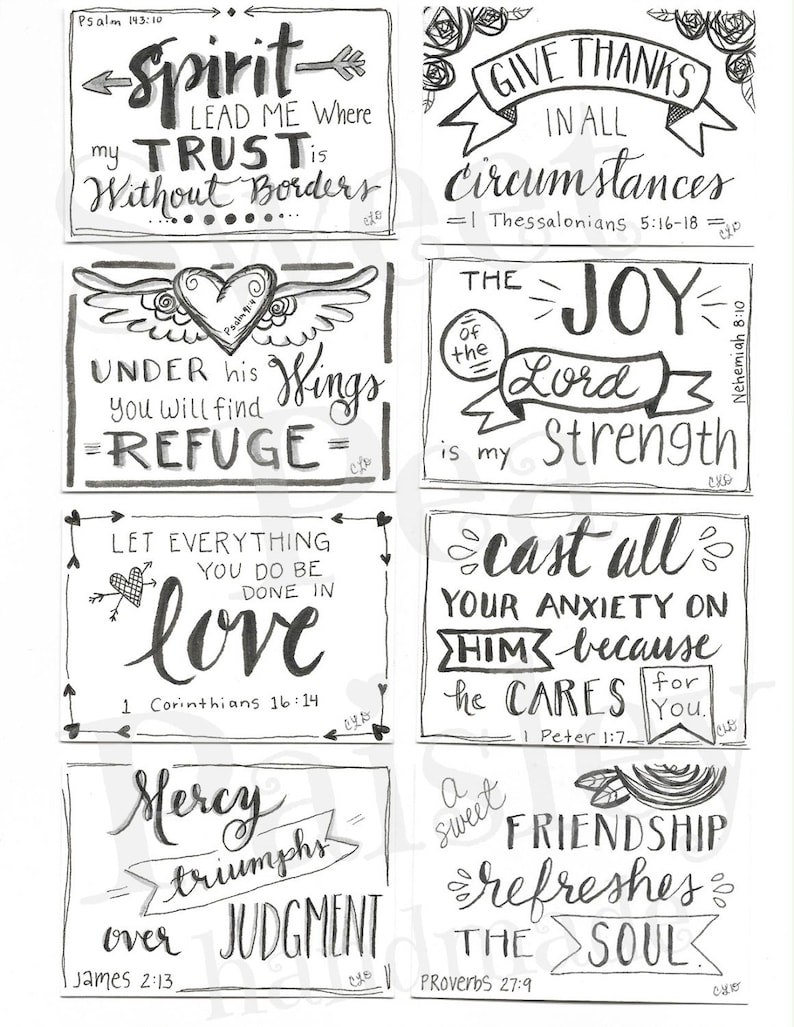 Psalm 143:10
Spirit
LEAD ME Where
my TRUST is
Without Borders
CLD
GIVE THANKS
IN ALL
Circumstances
1 Thessalonians 5:16-18
CLD
Psalm 91:4
UNDER his Wings
You Will find
REFUGE
CLD
THE JOY
of the
Lord
is my Strength
Nehemiah 8:10
CLD
LET EVERYTHING
YOU DO BE
DONE IN
love
1 Corinthians 16:14
CLD
cast all
YOUR ANXIETY ON
HIM because
he CARES for
You.
1 Peter 1:7
CLD
Mercy
triumphs
over JUDGMENT
James 2:13
CLD
a
sweet
FRIENDSHIP
refreshes
THE SOUL.
Proverbs 27:9
CLD
Sweet
Pea
Paisley
handmade